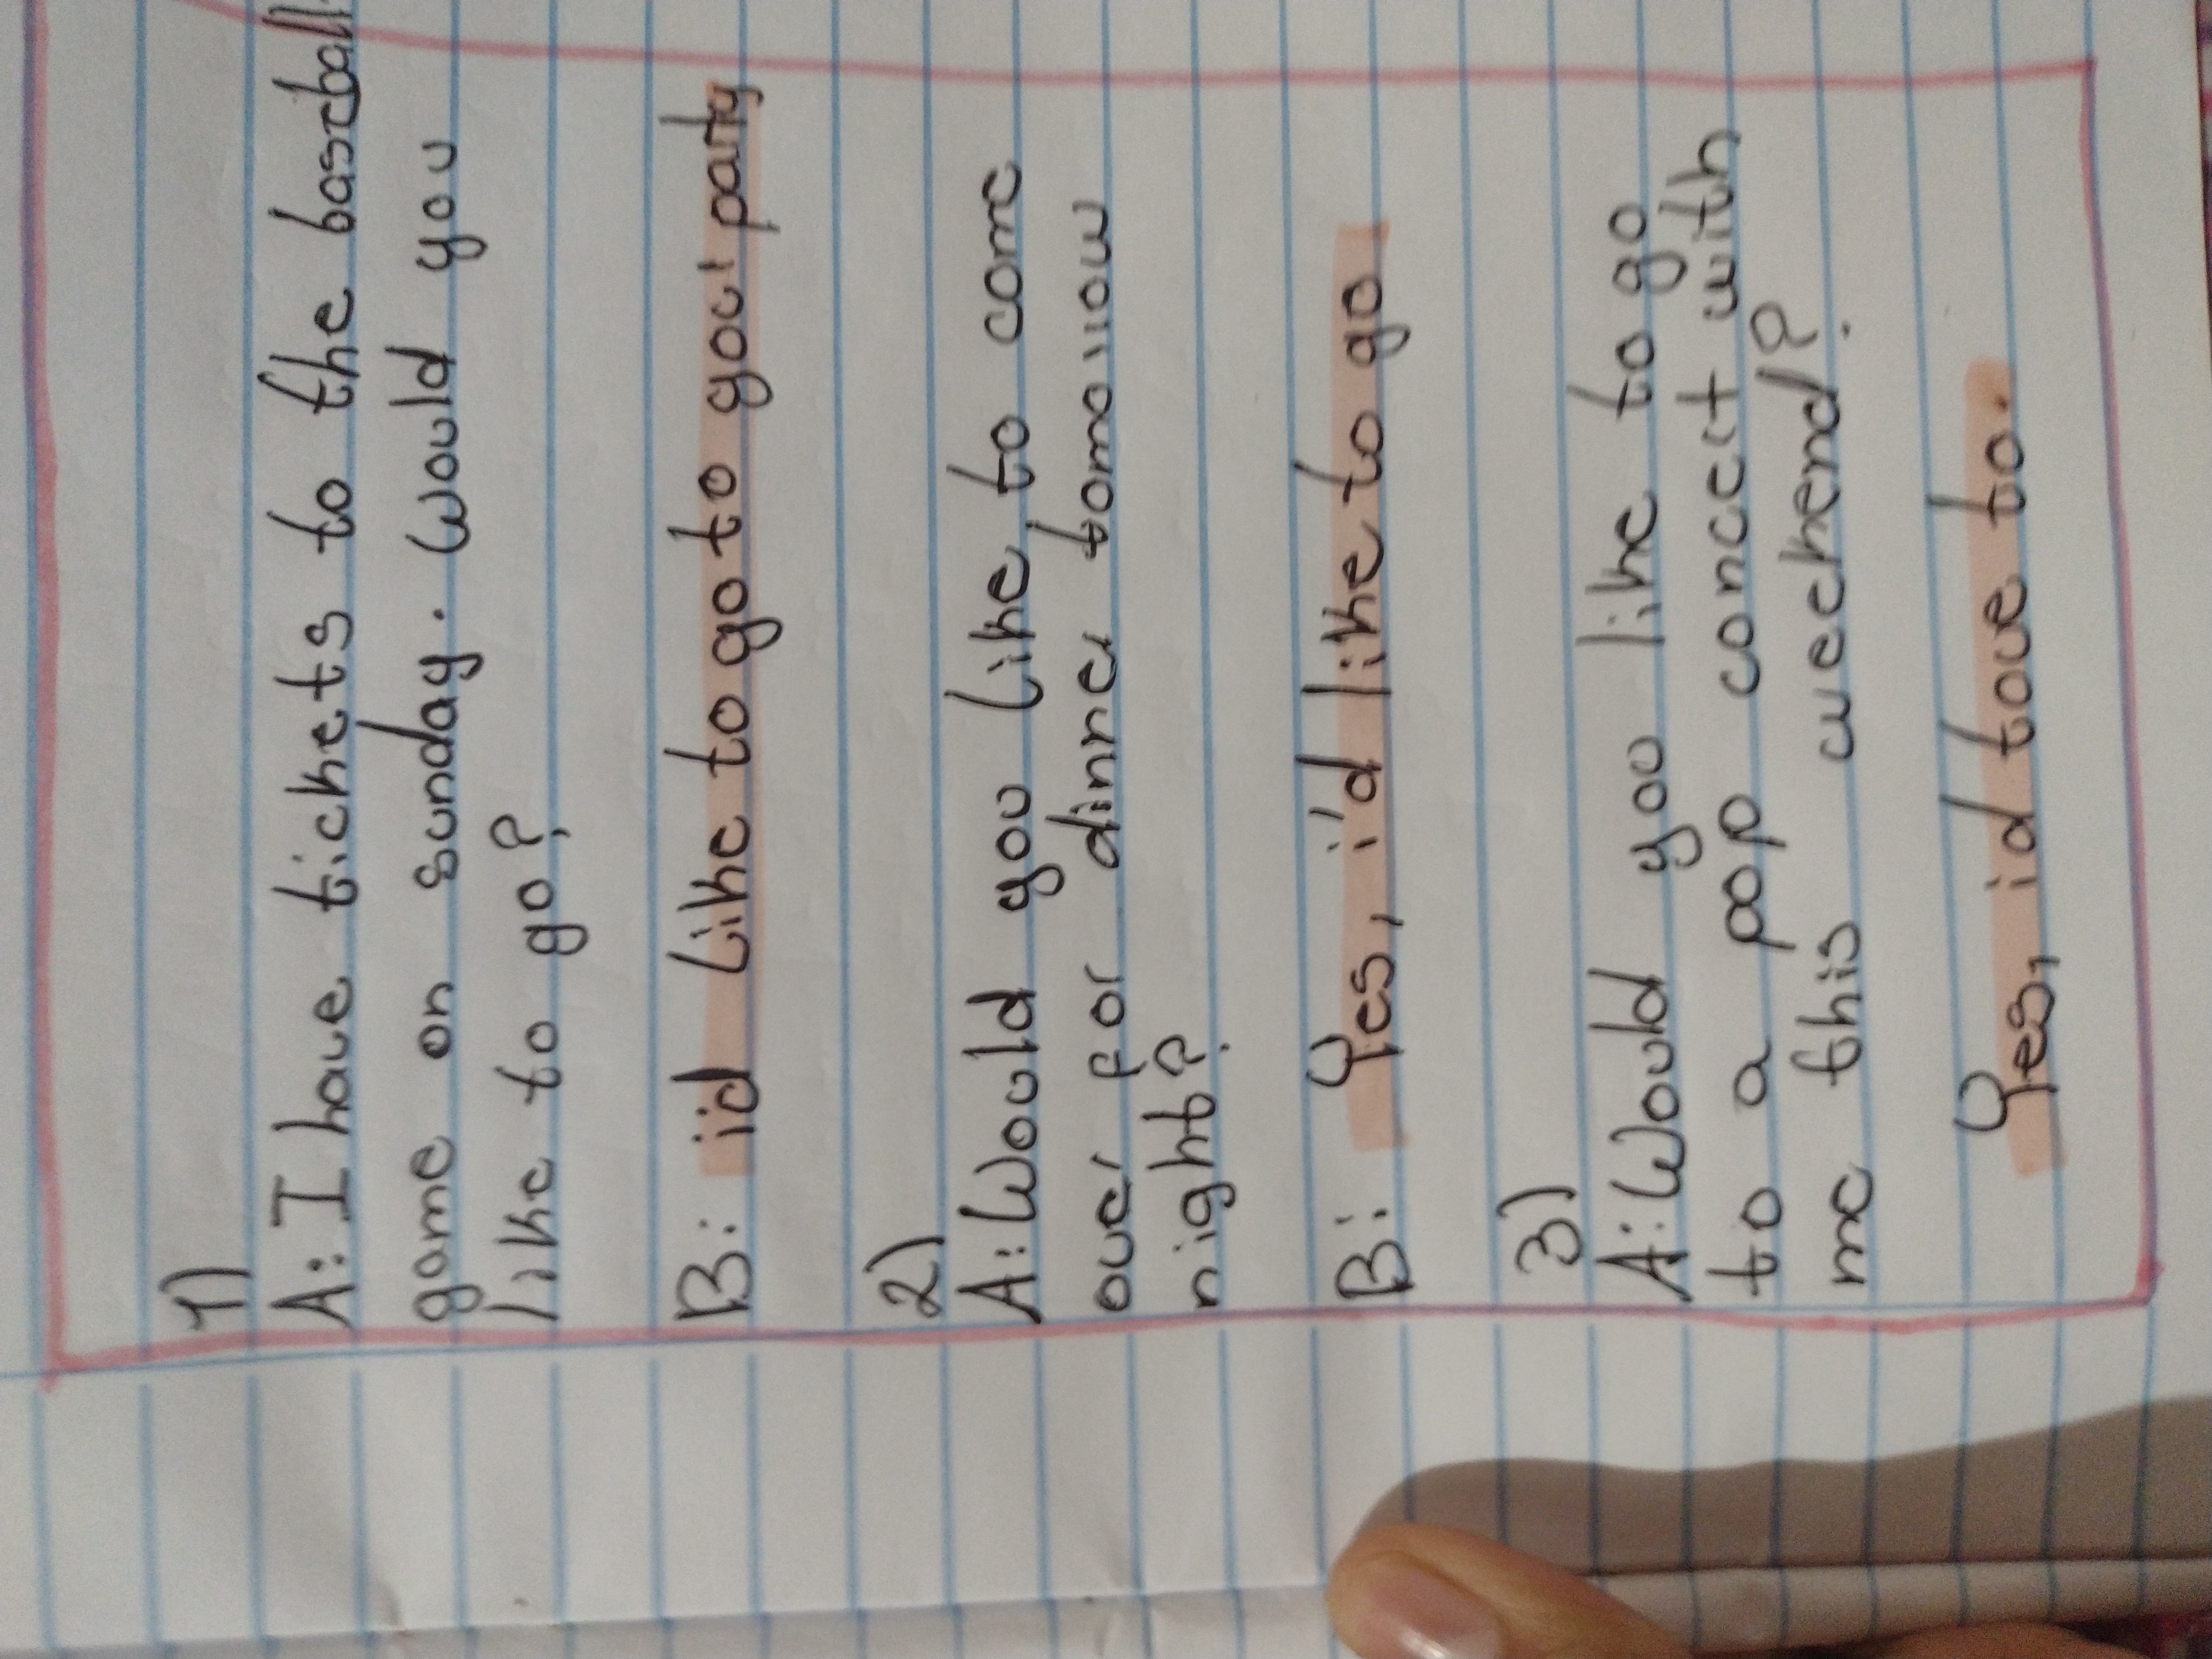 1)
A: I have tickets to the baseball
game on sunday. Would you
like to go?
B: id Like to go to your party
2)
A: Would you Like to come
over for dinner tomorrow
night?
B: Yes, i'd like to go
3)
A: Would you like to go
to a pop concect with
me this weekend?
Yes, id tove to.